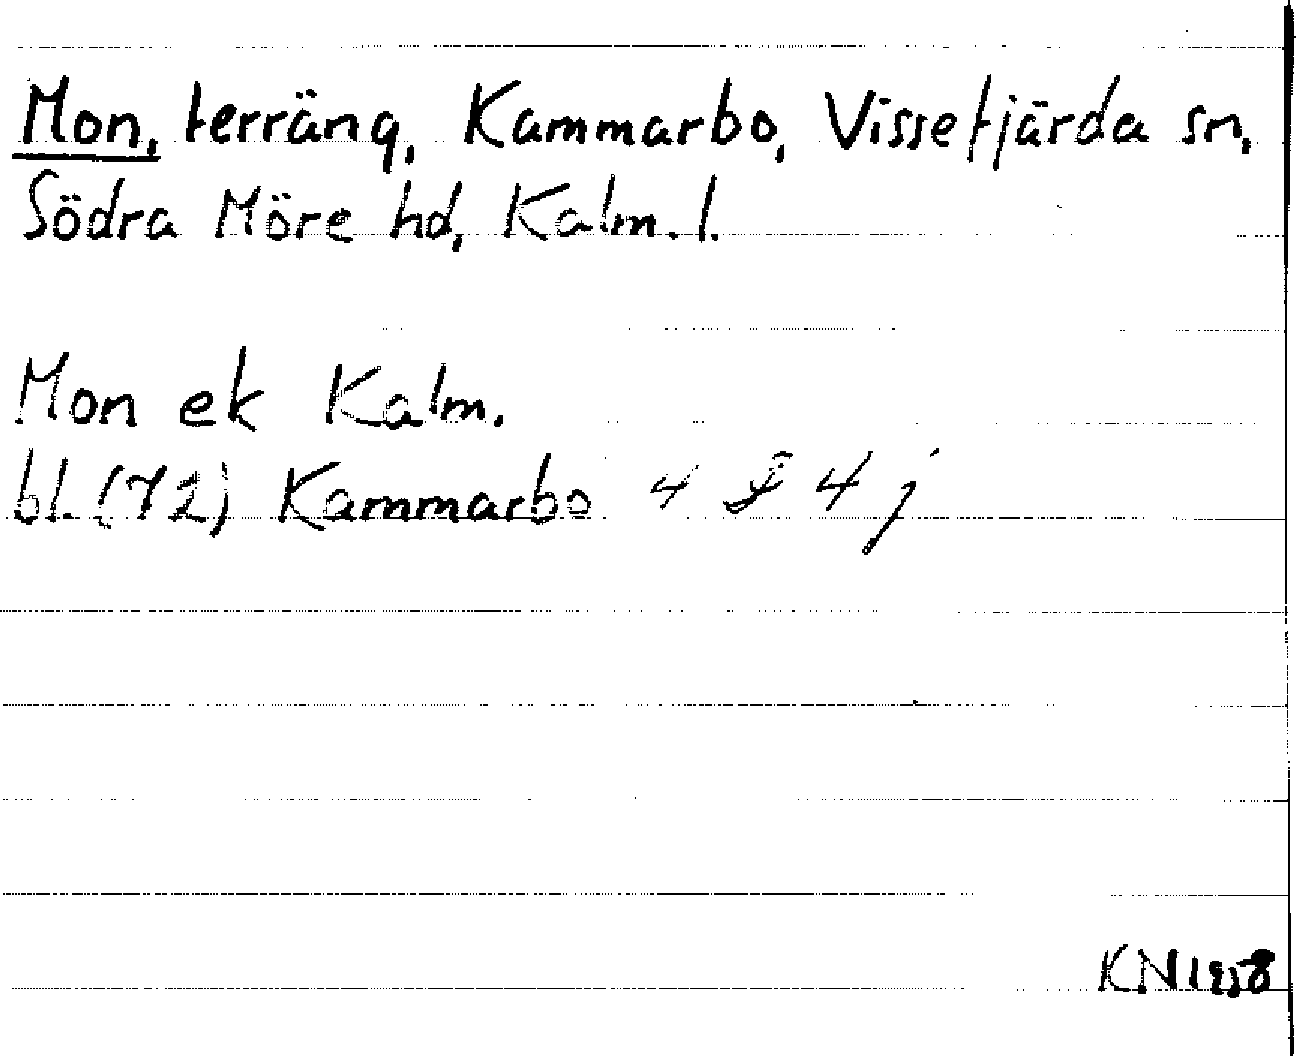 Mon, terräng, Kammarbo, Vissefjärda sn,
Södra Möre hd, Kalm. l.
Mon ek Kalm.
bl. (72) Kammarbo 4 F 4 j
KN 1958